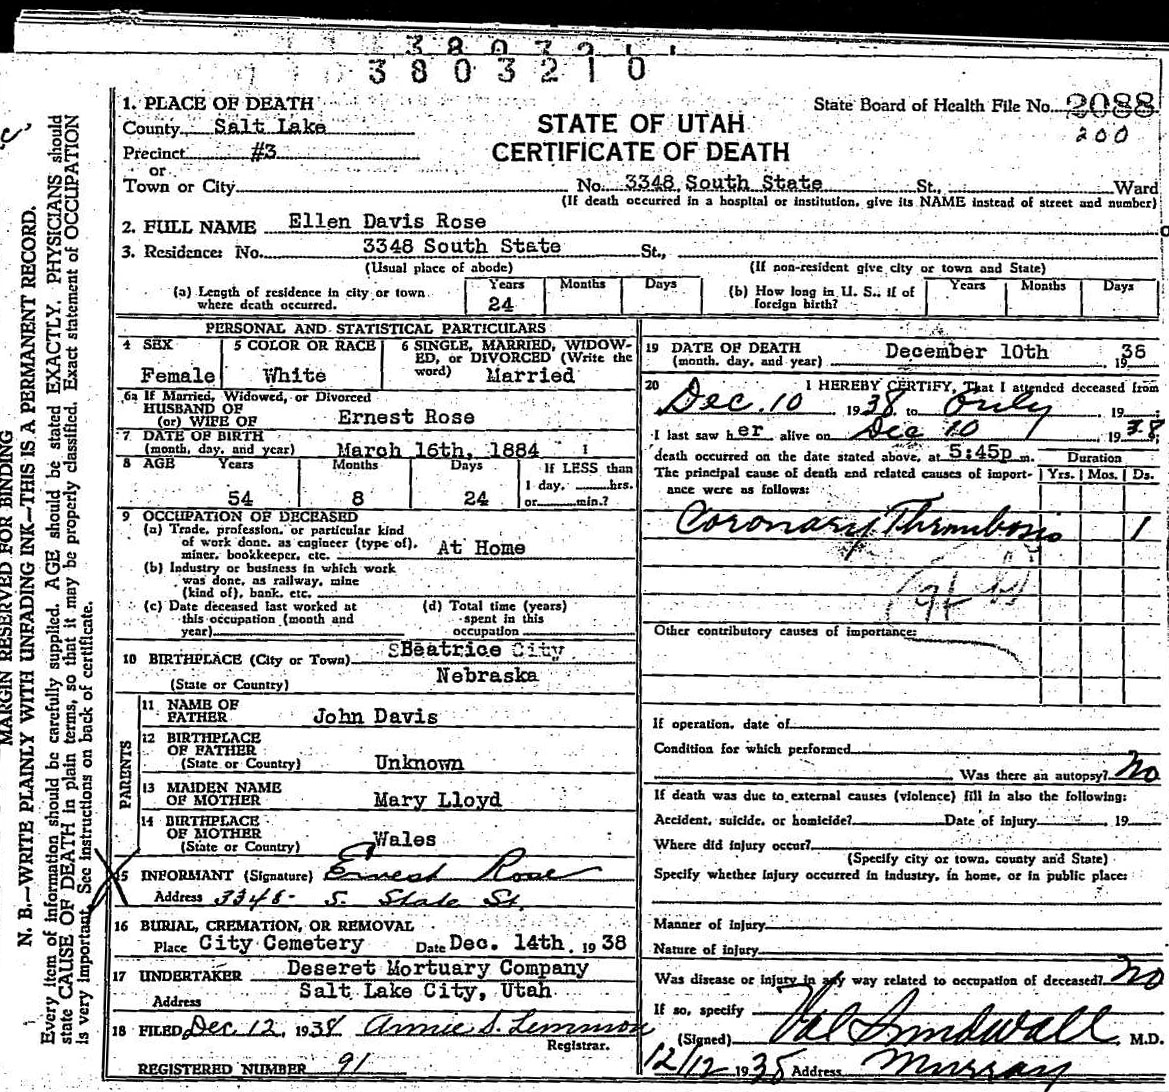 3803210
1. PLACE OF DEATH
County Salt Lake
Precinct #3
or
Town or City
State Board of Health File No. 2088
200
STATE OF UTAH
CERTIFICATE OF DEATH
No. 3348 South State St., Ward
(If death occurred in a hospital or institution, give its NAME instead of street and number)
2. FULL NAME Ellen Davis Rose
3. Residence: No. 3348 South State St.,
(Usual place of abode) (If non-resident give city or town and State)
(a) Length of residence in city or town where death occurred. Years 24 Months Days
(b) How long in U. S., if of foreign birth? Years Months Days
PERSONAL AND STATISTICAL PARTICULARS
4 SEX Female
5 COLOR OR RACE White
6 SINGLE, MARRIED, WIDOWED, or DIVORCED (Write the word) Married
6a If Married, Widowed, or Divorced
HUSBAND OF
(or) WIFE OF Ernest Rose
7 DATE OF BIRTH
(month, day, and year) March 16th, 1884
8 AGE Years Months Days If LESS than
54 8 24 1 day, hrs.
or min.?
9 OCCUPATION OF DECEASED
(a) Trade, profession, or particular kind
of work done, as engineer (type of),
miner, bookkeeper, etc. At Home
(b) Industry or business in which work
was done, as railway, mine
(kind of), bank, etc.
(c) Date deceased last worked at
this occupation (month and
year)
(d) Total time (years)
spent in this
occupation
10 BIRTHPLACE (City or Town) Beatrice City
(State or Country) Nebraska
PARENTS
11 NAME OF
FATHER John Davis
12 BIRTHPLACE
OF FATHER
(State or Country) Unknown
13 MAIDEN NAME
OF MOTHER Mary Lloyd
14 BIRTHPLACE
OF MOTHER
(State or Country) Wales
15 INFORMANT (Signature) Ernest Rose
Address 3348- S. State St.
16 BURIAL, CREMATION, OR REMOVAL
Place City Cemetery Date Dec. 14th, 1938
17 UNDERTAKER Deseret Mortuary Company
Address Salt Lake City, Utah
18 FILED Dec 12, 1938 Annie S. Lemmon
Registrar.
REGISTERED NUMBER 91
19 DATE OF DEATH
(month, day, and year) December 10th 19 38
20 I HEREBY CERTIFY, That I attended deceased from
Dec. 10 1938 to Only, 19
I last saw her alive on Dec 10 1938
death occurred on the date stated above, at 5:45p m. Duration
The principal cause of death and related causes of importance were as follows: Yrs. Mos. Ds.
Coronary Thrombosis 1
Other contributory causes of importance:
If operation, date of
Condition for which performed
Was there an autopsy? No
If death was due to external causes (violence) fill in also the following:
Accident, suicide, or homicide? Date of injury 19
Where did injury occur?
(Specify city or town, county and State)
Specify whether injury occurred in industry, in home, or in public place:
Manner of injury
Nature of injury
Was disease or injury in any way related to occupation of deceased? No
If so, specify
(Signed) Val Sundwall M.D.
12/12 1938 Address Murray
MARGIN RESERVED FOR BINDING
N. B.—WRITE PLAINLY WITH UNFADING INK—THIS IS A PERMANENT RECORD.
Every item of information should be carefully supplied. AGE should be stated EXACTLY. PHYSICIANS should
state CAUSE OF DEATH in plain terms, so that it may be properly classified. Exact statement of OCCUPATION
is very important. See instructions on back of certificate.